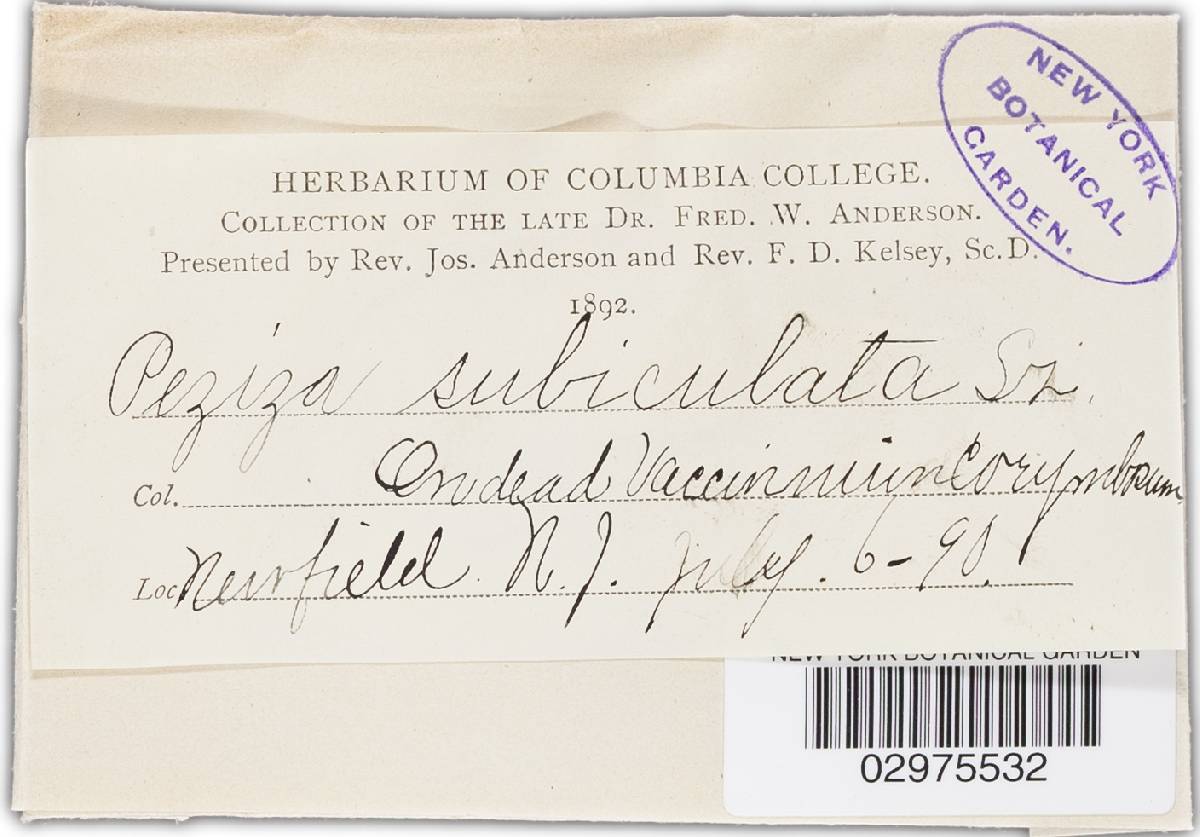 NEW YORK
BOTANICAL
GARDEN.
HERBARIUM OF COLUMBIA COLLEGE.
COLLECTION OF THE LATE DR. FRED. W. ANDERSON.
Presented by Rev. Jos. Anderson and Rev. F. D. Kelsey, Sc.D.
1892.
Peziza subiculata
Col. On dead Vaccinnium Corymbosum
Loc Newfield N. J. July. 6-90.
NEW YORK BOTANICAL GARDEN
02975532